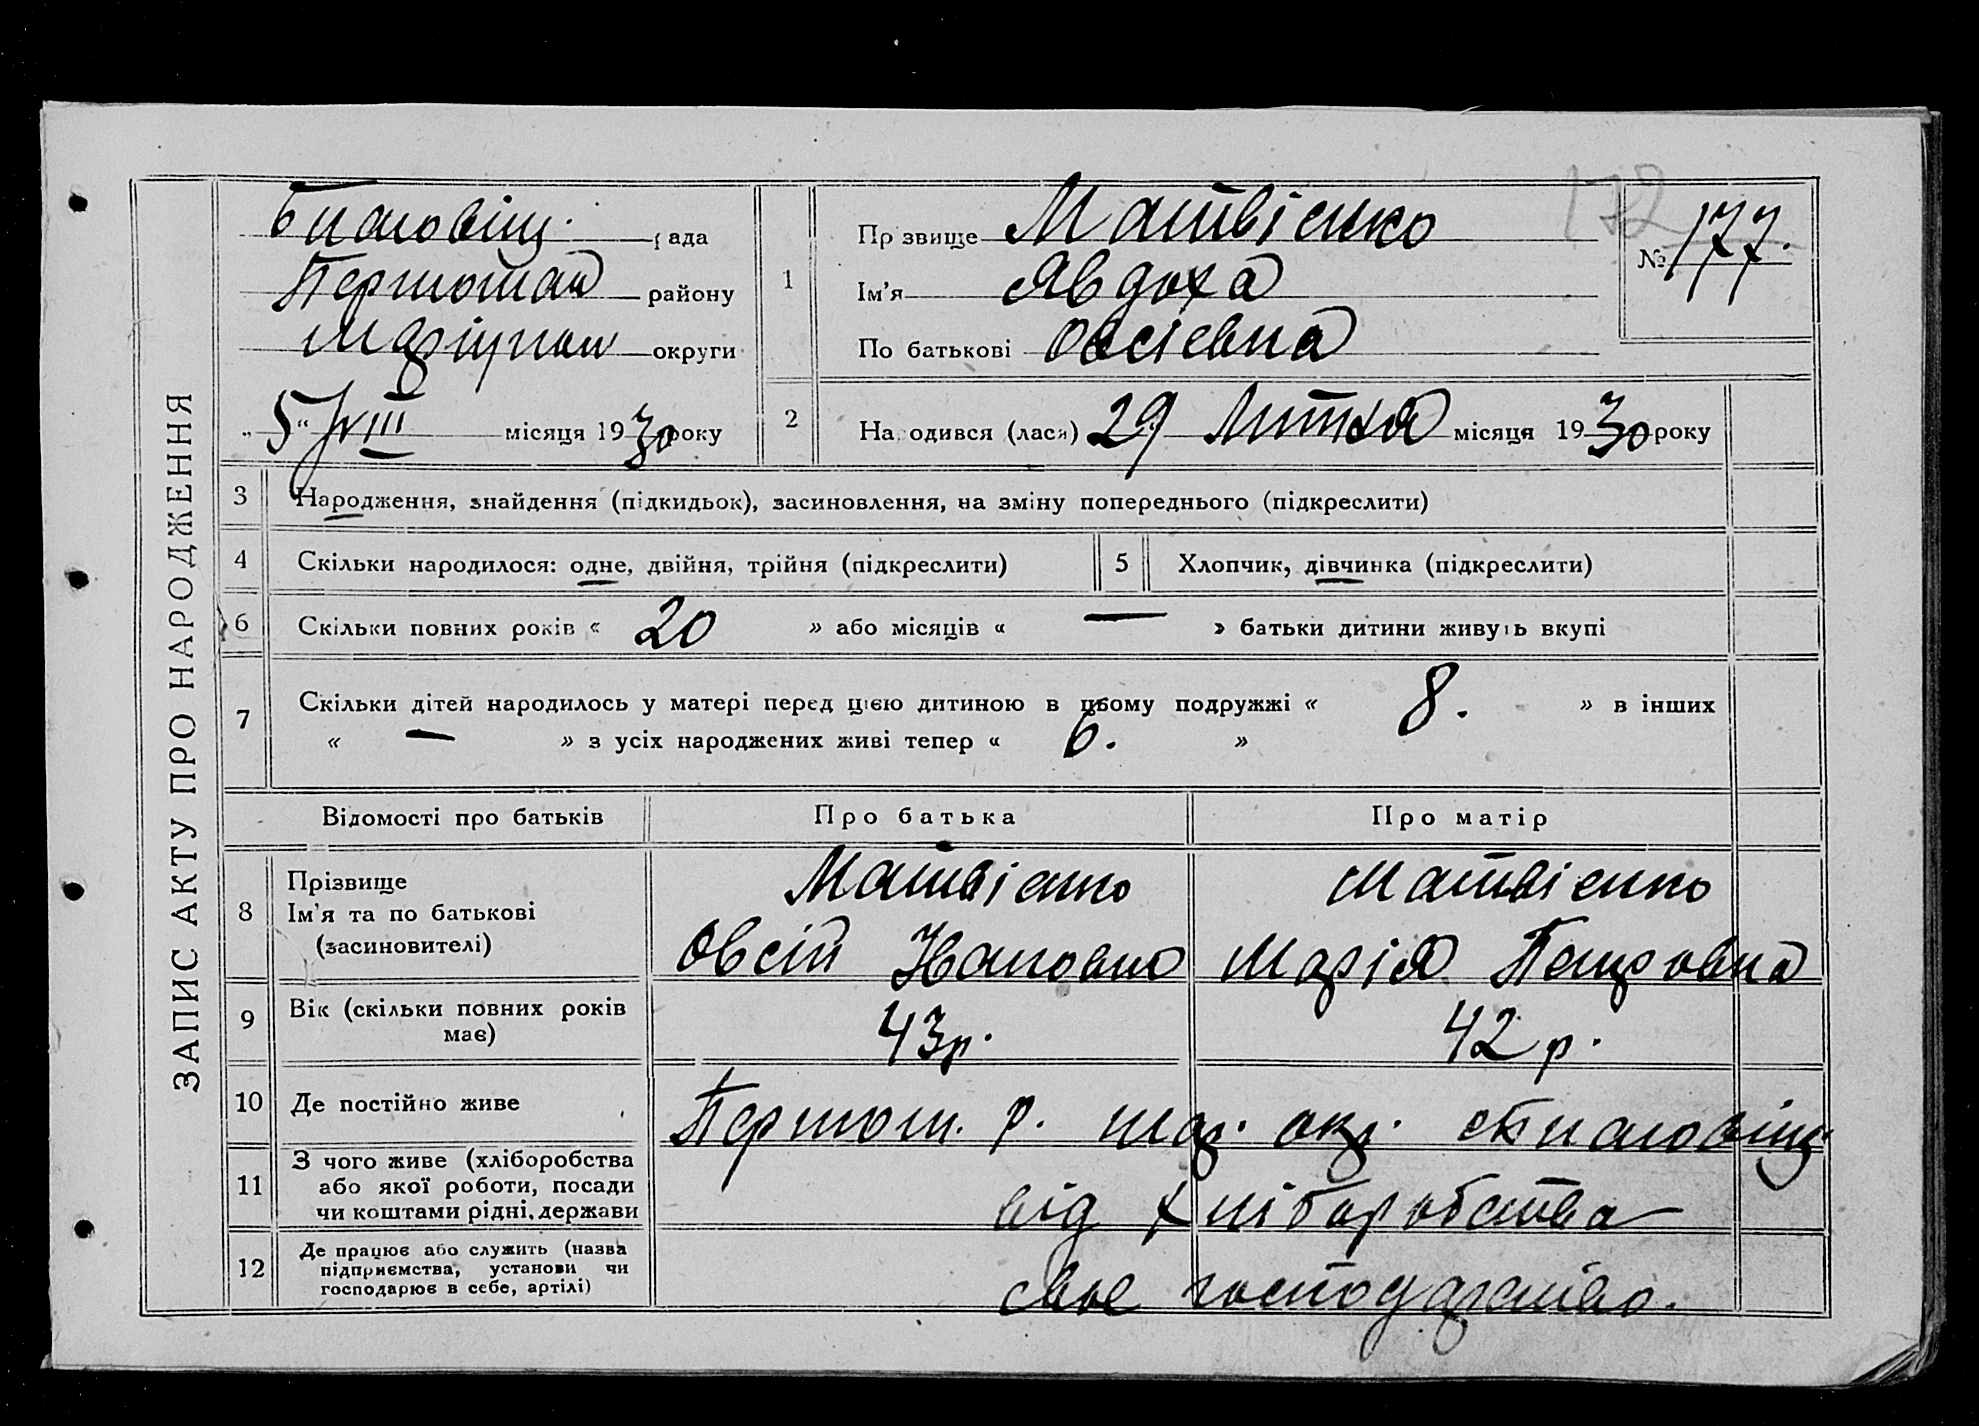 ЗАПИС АКТУ ПРО НАРОДЖЕННЯ
172
Благовіщ. рада
Першотрав району
Маріупол округи
„5“ VIII місяця 1930 року
1 Прізвище Матвієнко
Ім’я Явдоха
По батькові Овсієвна
№ 177.
2 Народився (лася) 29 Липня місяця 1930 року
3 Народження, знайдення (підкидьок), засиновлення, на зміну попереднього (підкреслити)
4 Скільки народилося: одне, двійня, трійня (підкреслити) 5 Хлопчик, дівчинка (підкреслити)
6 Скільки повних років « 20 » або місяців « — » батьки дитини живуть вкупі
7 Скільки дітей народилось у матері перед цією дитиною в цьому подружжі « 8. » в інших
« — » з усіх народжених живі тепер « 6. »
Відомості про батьків Про батька Про матір
8 Прізвище Матвієнко Матвієнко
Ім’я та по батькові
(засиновителі) Овсій Марія Петровна
9 Вік (скільки повних років
має) 43 р. 42 р.
10 Де постійно живе р. Мар. окр. с Благовіщ.
11 З чого живе (хліборобства
або якої роботи, посади
чи коштами рідні, держави від хліборобства
12 Де працює або служить (назва
підприємства, установи чи
господарює в себе, артілі) своє господарство.